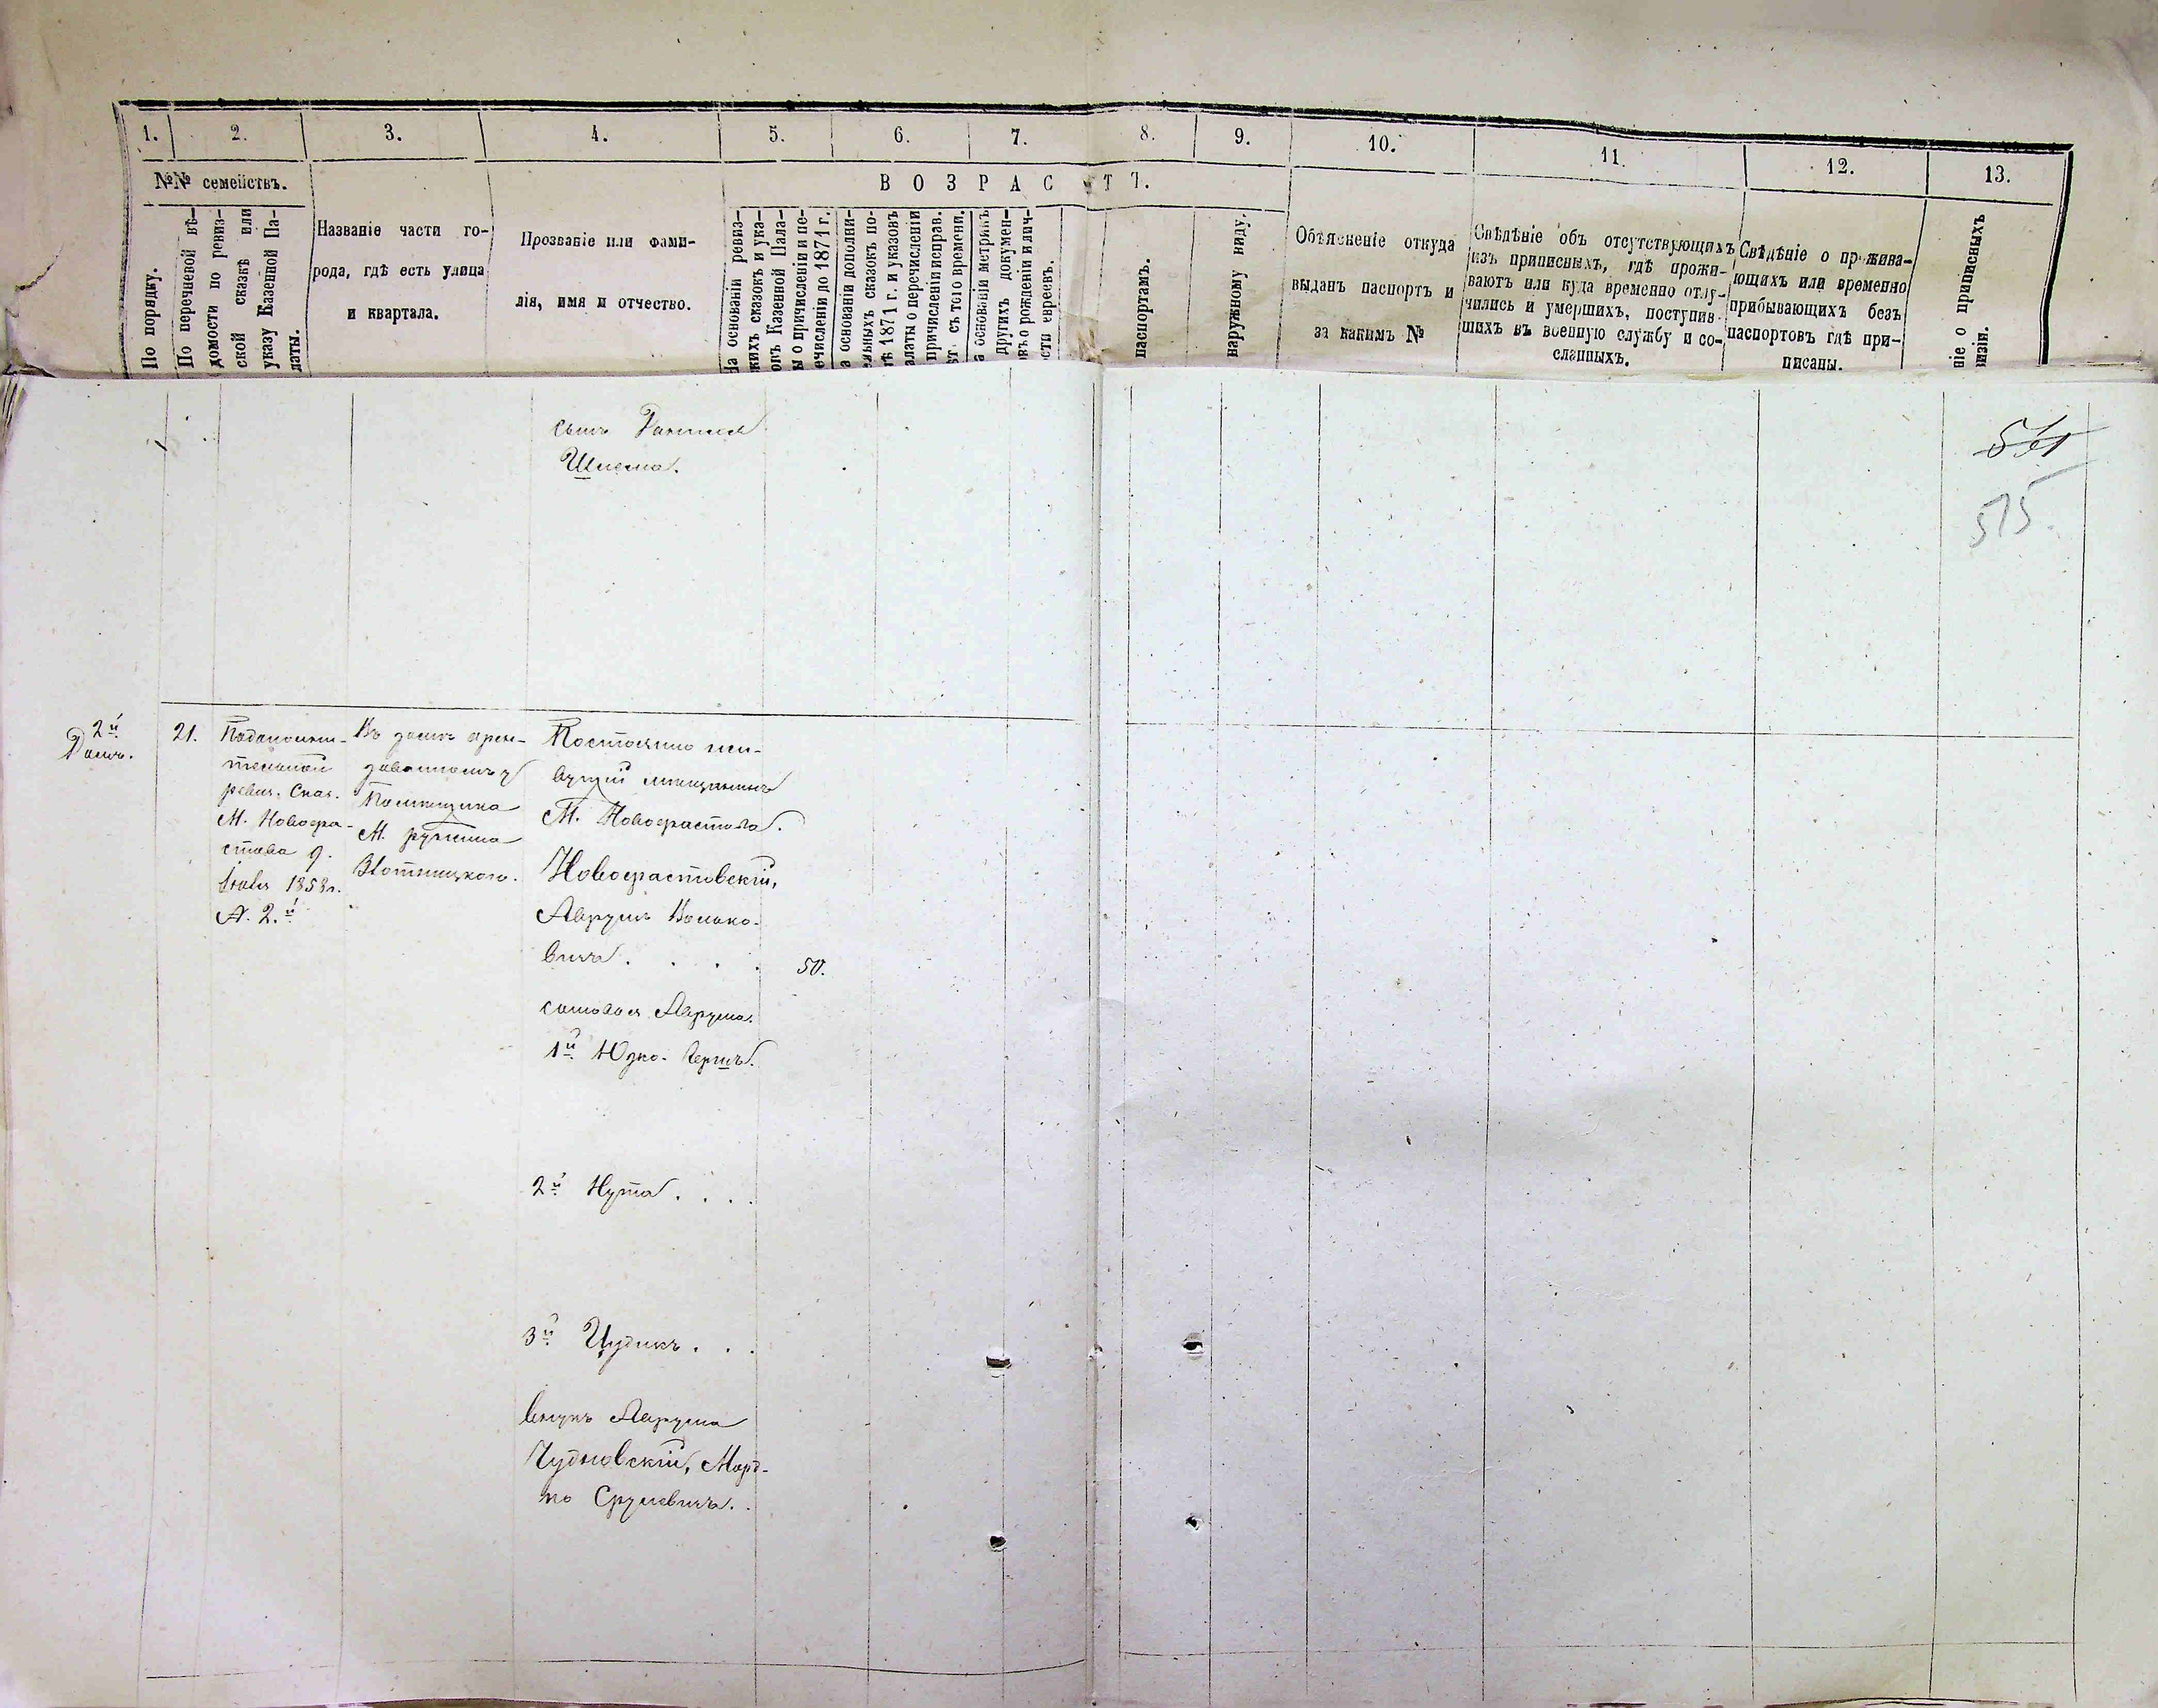 1. 2. 3. 4. 5. 6. 7. 8. 9. 10. 11. 12. 13.
№№ семействъ.
В О З Р А С Т Ъ.
По порядку.
По перечневой вѣ-
домости по ревиз-
ской сказкѣ или
указу Казенной Па-
латы.
Названіе части го-
рода, гдѣ есть улица
и квартала.
Прозваніе или фами-
лія, имя и отчество.
На основаніи ревиз-
скихъ сказокъ и ука-
зовъ Казенной Пала-
ты о причисленіи и пе-
речисленіи до 1871 г.
а основаніи дополни-
ельныхъ сказокъ по-
лѣ 1871 г. и указовъ
алаты о перечисленіи
причисленіи исправ.
съ того времени.
а основаніи метрикъ
другихъ докумен-
овъ о рожденіи и лич-
ости евреевъ.
паспортамъ.
наружному виду.
Объясненіе откуда
выданъ паспортъ и
за какимъ №
Свѣдѣніе объ отсутствующихъ
изъ приписныхъ, гдѣ прожи-
ваютъ или куда временно отлу-
чились и умершихъ, поступив-
шихъ въ военную службу и со-
сланныхъ.
Свѣдѣніе о прожива-
ющихъ или временно
прибывающихъ безъ
паспортовъ гдѣ при-
писаны.
ніе о приписныхъ
визіи.
сынъ
Шлема.
515
2й
21.
ревиз. Сказ.
М. Новохра-
стова 9.
Іюля 1858 г.
№. 2.й
Въ домѣ арен-
Помѣщика
М. Ружина
Злотницкого.
Постоянно жи-
вущій мѣщанинъ
М. Новохрастова.
Новохрастовскій,
Аврумъ
вичъ . . . .
50.
сыновья Аврума.
1й Юдко-Гершъ.
2й Нута . . . .
3й Цудикъ . . .
внукъ Аврума
Чудновскій, Морд-
ко Срулевичъ.